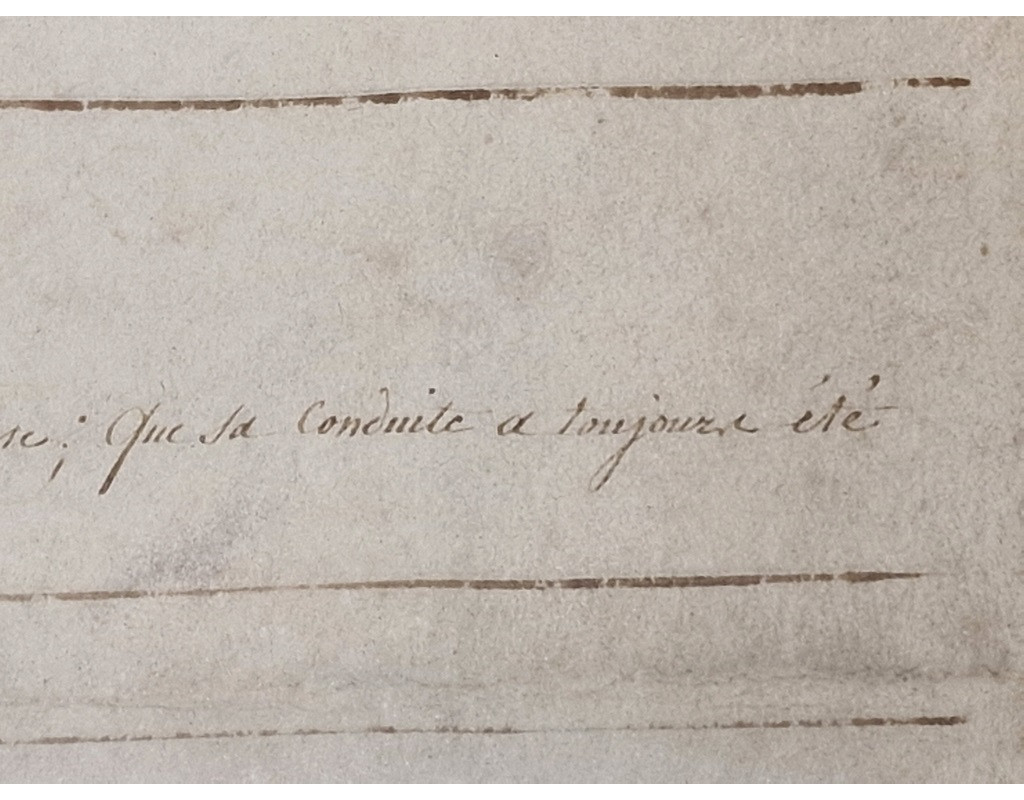 se ; Que sa Conduite a toujours été